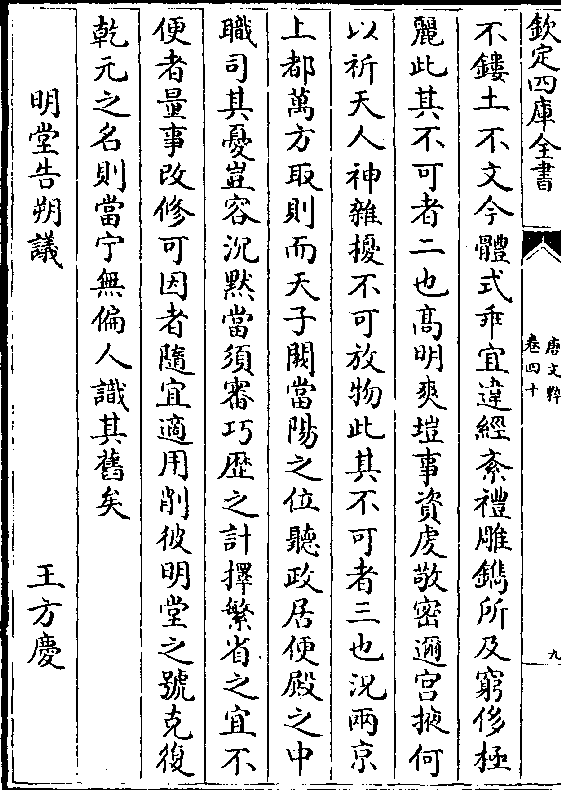 欽定四庫全書
唐文粹
卷四十
九
不鏤土不文今體式乖宜違經紊禮雕鐫所及窮侈極
麗此其不可者二也髙明爽塏事資虔敬密邇宫掖何
以祈天人神雜擾不可放物此其不可者三也况兩京
上都萬方取則而天子闕當陽之位聽政居便殿之中
職司其憂豈容沉默當須審巧歴之計擇繁省之宜不
便者量事改修可因者隨宜適用削彼明堂之號克復
乾元之名則當宁無偏人識其舊矣
明堂告朔議　王方慶